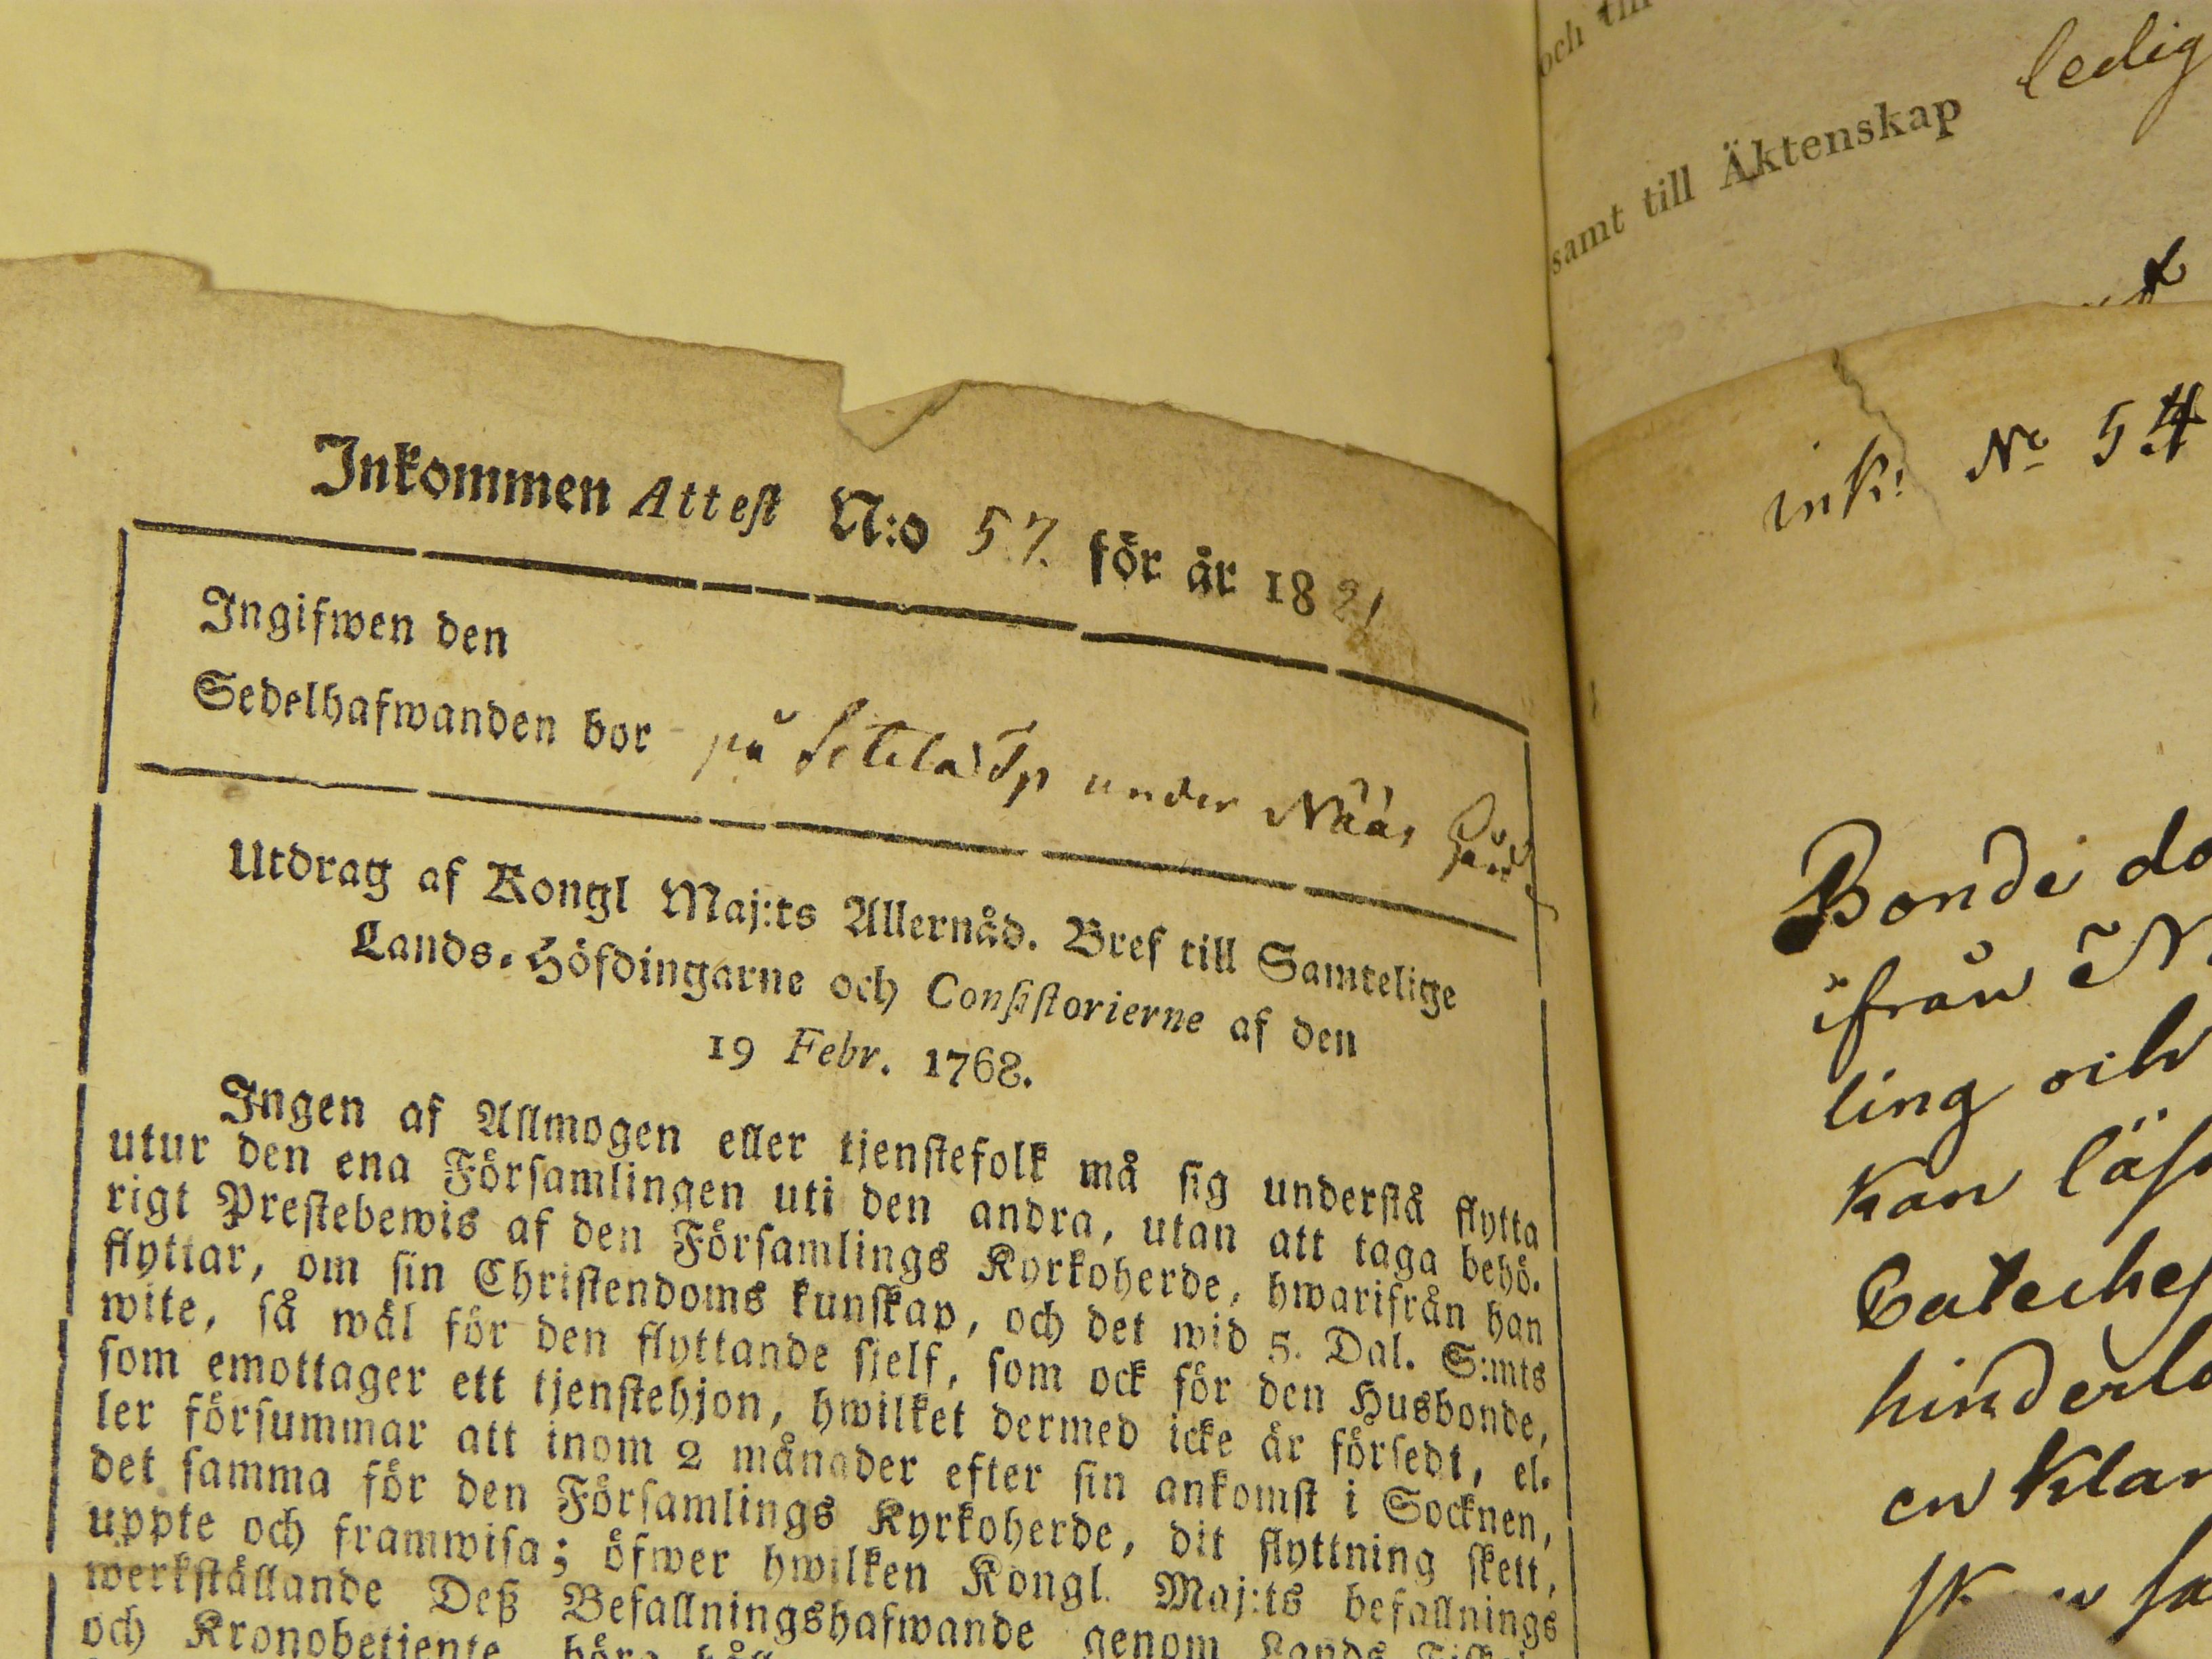 Inkommen Attest N:o 57. för år 1821
Ingifwen den
Sedelhafwanden bor på under Nääs
Utdrag af Kongl Maj:ts Allernåd. Bref till Samtelige
Lands-Höfdingarne och Consistorierne af den
19 Febr. 1768.
Ingen af Allmogen eller tjenstefolk må sig understå flytta
utur den ena Församlingen uti den andra, utan att taga behö-
rigt Prestebewis af den Församlings Kyrkoherde, hwarifrån han
flyttar, om sin Christendoms kunskap, och det wid 5. Dal. S:mts
wite, så wäl för den flyttande sjelf, som ock för den Husbonde,
som emottager ett tjenstehjon, hwilket dermed icke är försedt, el-
ler försummar att inom 2 månader efter sin ankomst i Socknen,
det samma för den Församlings Kyrkoherde, dit flyttning skett,
uppte och framwisa; öfwer hwilken Kongl. Maj:ts befallnings
werkställande Deß Befallningshafwande genom Lands
och Kronobetjente böra
och till
samt till Äktenskap ledig
ink: No 54
Bonde
ifrån
ling och
kan
hinderlö
en klan